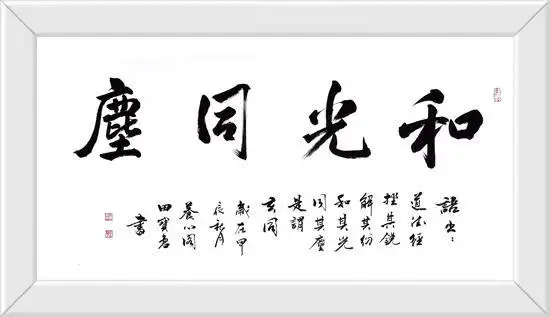 和光同塵
語出:
道德經
挫其銳
解其紛
和其光
同其塵
是謂
玄同
歲在甲
辰秋月
養心閣
田寶
書